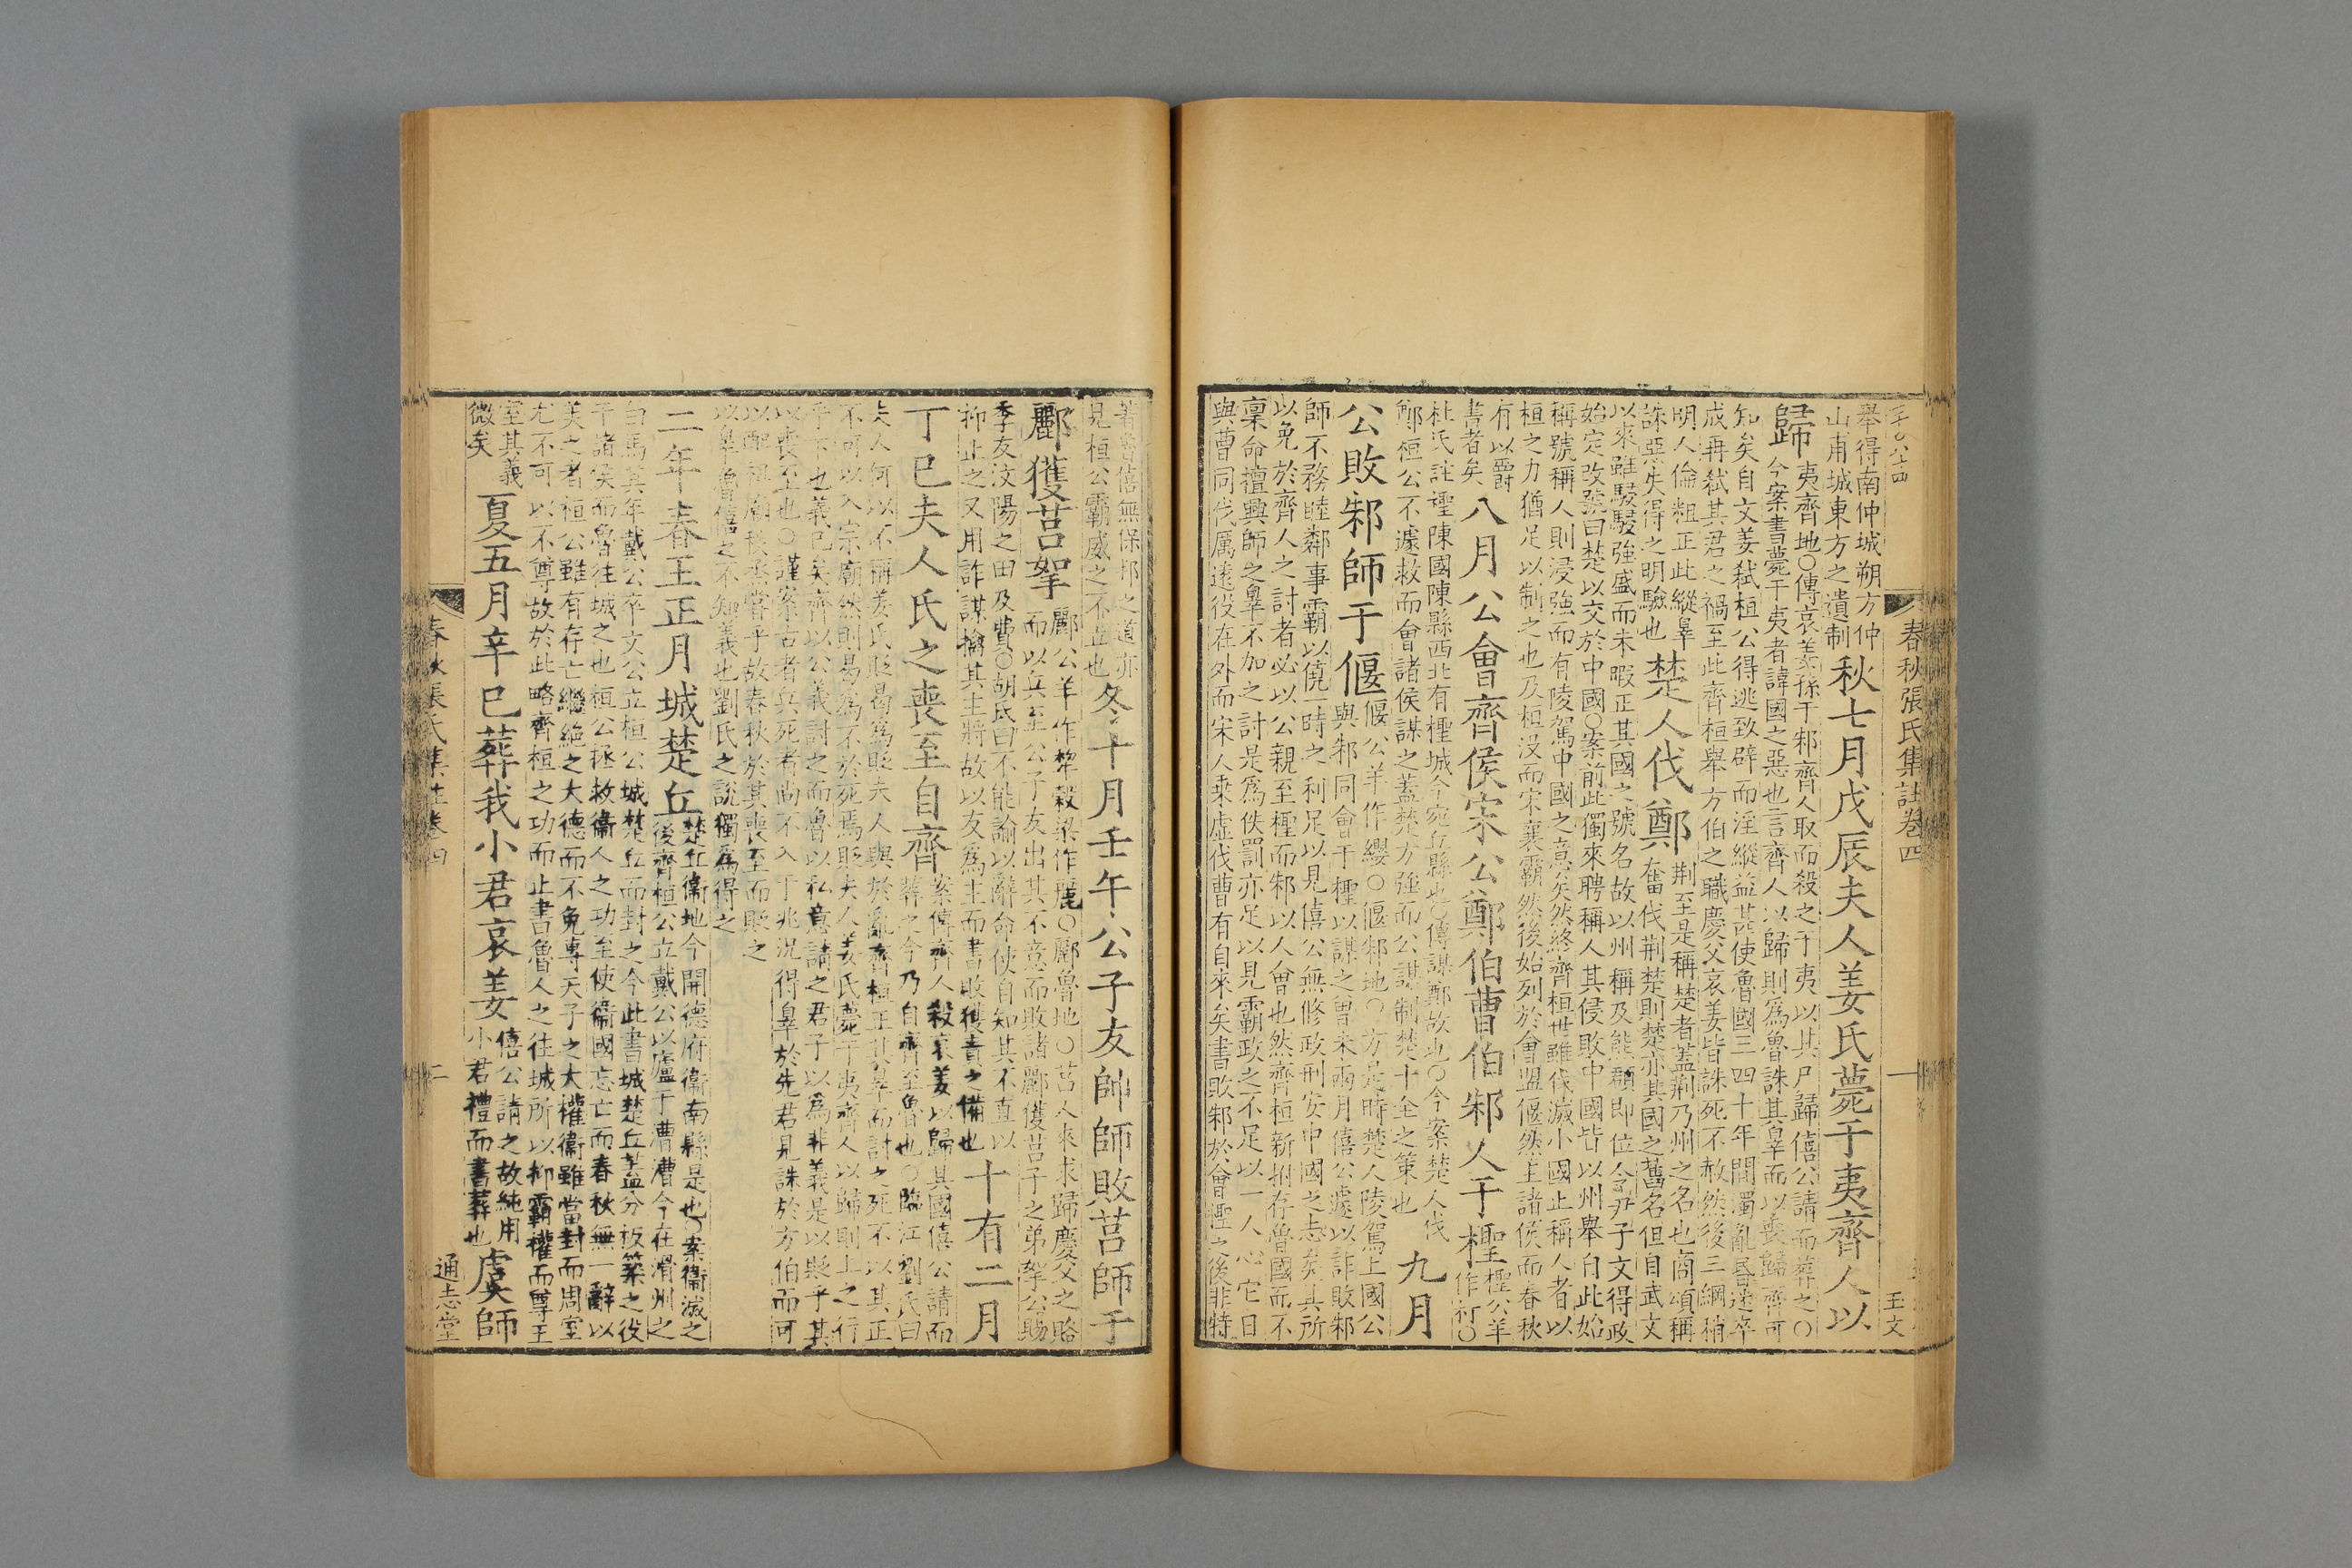 春秋張氏集註卷四
一
舉得南仲城朔方仲
山甫城東方之遺制
秋七月戊辰夫人姜氏薨于夷齊人以
歸
夷齊地○傳哀姜孫于邾齊人取而殺之于夷以其尸歸僖公請而葬之○
今案書薨于夷者諱國之惡也言齊人以歸則為魯誅其辠而以喪歸齊可
知矣自文姜弒桓公得逃致辟而淫縱益甚使魯國三四十年間濁亂昏迷卒
成再弒其君之禍至此齊桓舉方伯之職慶父哀姜皆誅死不赦然後三綱稍
明人倫粗正此縱辠
誅惡失得之明驗也
楚人伐鄭
荆至是稱楚者蓋荆乃州之名也商頌稱
奮伐荆楚則楚亦其國之舊名但自武文
以來雖駸駸強盛而未暇正其國之號名故以州稱及熊頵即位令尹子文得政
始定改號曰楚以交於中國○案前此獨來聘稱人其侵敗中國皆以州舉自此始
稱號稱人則浸強而有陵駕中國之意矣然終齊桓世雖伐滅小國止稱人者以
桓之力猶足以制之也及桓没而宋襄霸然後始列於會盟偃然主諸侯而春秋
有以爵
書者矣
八月公會齊侯宋公鄭伯曹伯邾人于檉
檉公羊
作朾○
杜氏註檉陳國陳縣西北有檉城今宛丘縣也○傳謀鄭故也○今案楚人伐
鄭桓公不遽救而會諸侯謀之蓋楚方強而公謀制楚十全之策也
九月
公敗邾師于偃
偃公羊作纓○偃邾地○方是時楚人陵駕上國公
與邾同會于檉以謀之曾未兩月僖公遽以詐敗邾
師不務睦鄰事霸以僥一時之利足以見僖公無修政刑安中國之志矣其所
以免於齊人之討者必以公親至檉而邾以人會也然齊桓新拊存魯國而不
稟命擅興師之辠不加之討是為佚罰亦足以見霸政之不足以一人心它日
與曹同伐厲遠役在外而宋人乗虛伐曹有自來矣書敗邾於會檉之後非特
著魯僖無保邦之道亦
見桓公霸威之不立也
冬十月壬午公子友帥師敗莒師于
酈獲莒挐
酈公羊作犂穀梁作麗○酈魯地○莒人來求歸慶父之賂
而以兵至公子友出其不意而敗諸酈獲莒子之弟挐公賜
季友汶陽之田及費○胡氏曰不能諭以辭命使自知其不直以
抑止之又用詐謀擒其主將故以友為主而書敗獲責之備也
十有二月
丁巳夫人氏之喪至自齊
案僖齊人殺哀姜以歸其國僖公請而
葬之今乃自齊至魯也○臨江劉氏曰
夫人何以不稱姜氏貶曷為貶夫人與於亂齊桓正其辠而討之死不以其正
不可以入宗廟然則曷為不於死焉貶夫人姜氏薨于夷齊人以歸則上之行
乎下也義已矣齊以公義討之而魯以私意請之君子以為非義是以貶乎其
以喪至也○謹案古者兵死者尚不入于兆況得辠於先君見誅於方伯而可
以配祖廟秩烝嘗乎故春秋於其喪至而貶之
以辠魯僖之不知義也劉氏之說獨為得之
二年春王正月城楚丘
楚丘衞地今開德府衞南縣是也○案衞滅之
後齊桓公立戴公以廬于漕漕今在滑州之
白馬其年戴公卒文公立桓公城楚丘而封之今此書城楚丘蓋分板築之役
于諸侯而魯往城之也桓公拯救衞人之功至使衞國忘亡而春秋無一辭以
美之者桓公雖有存亡繼絶之大德而不免專天子之大權衞雖當封而周室
尤不可以不尊故於此略齊桓之功而止書魯人之往城所以抑霸權而尊王
室其義
微矣
夏五月辛巳葬我小君哀姜
僖公請之故純用
小君禮而書葬也
虞師
春秋張氏集註卷四
二
通志堂